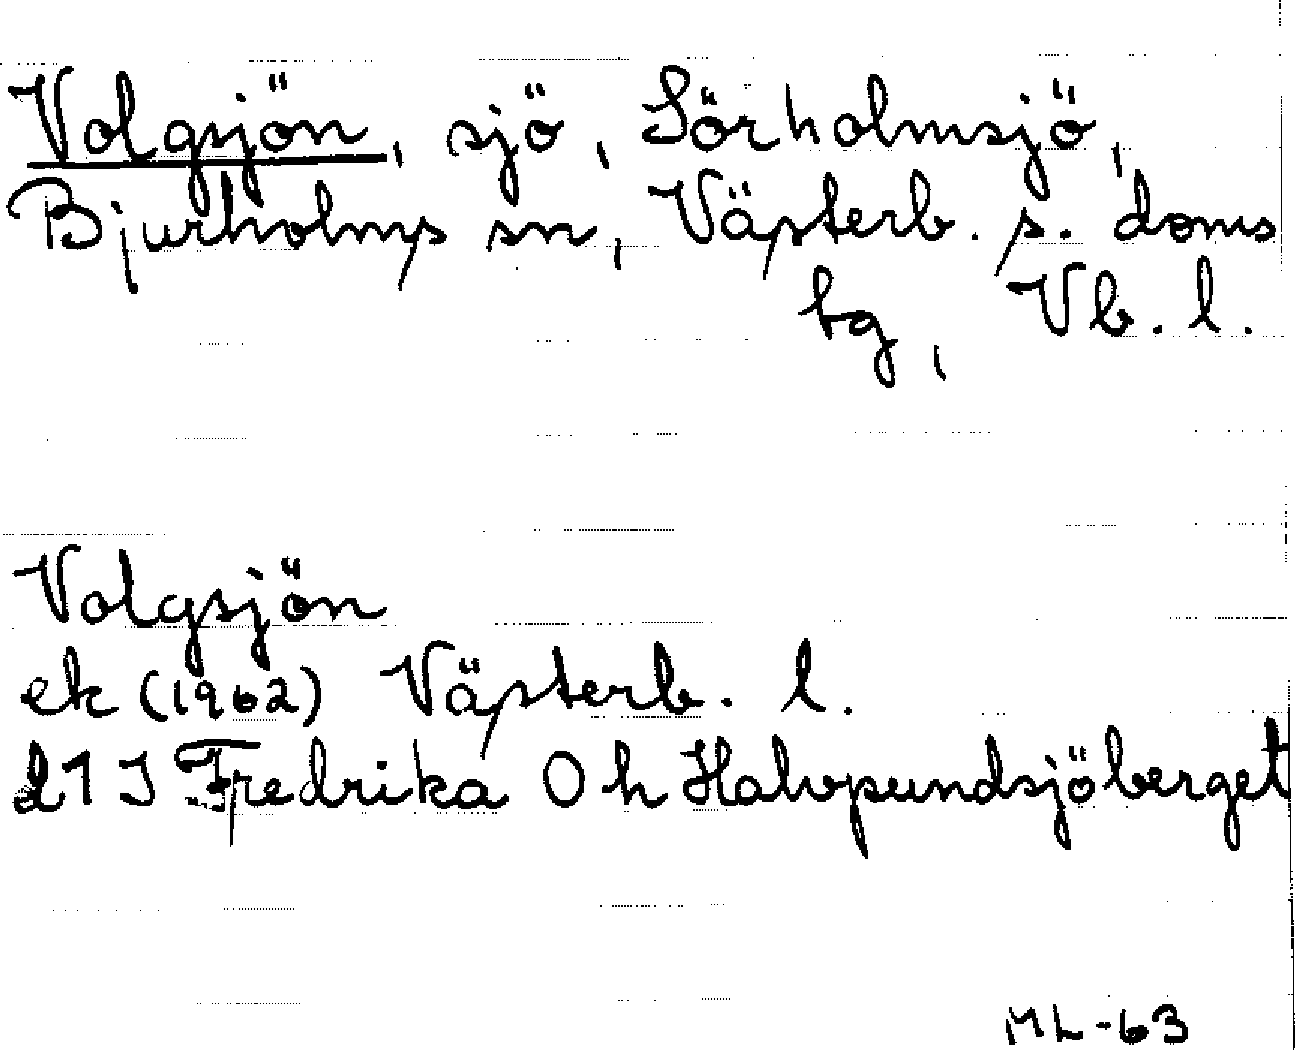 Volgsjön, sjö, Sörholmsjö,
Bjurholms sn, Västerb. s. doms
bg, Vb. l.
Volgsjön
ek (1962) Västerb. l.
21 J Fredrika O h Halvpundsjöberget
ML-63